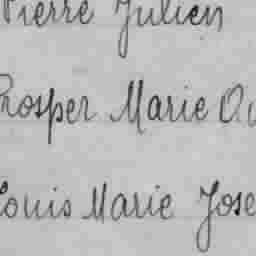 Pierre Julien
Prosper Marie
Louis Marie Jose